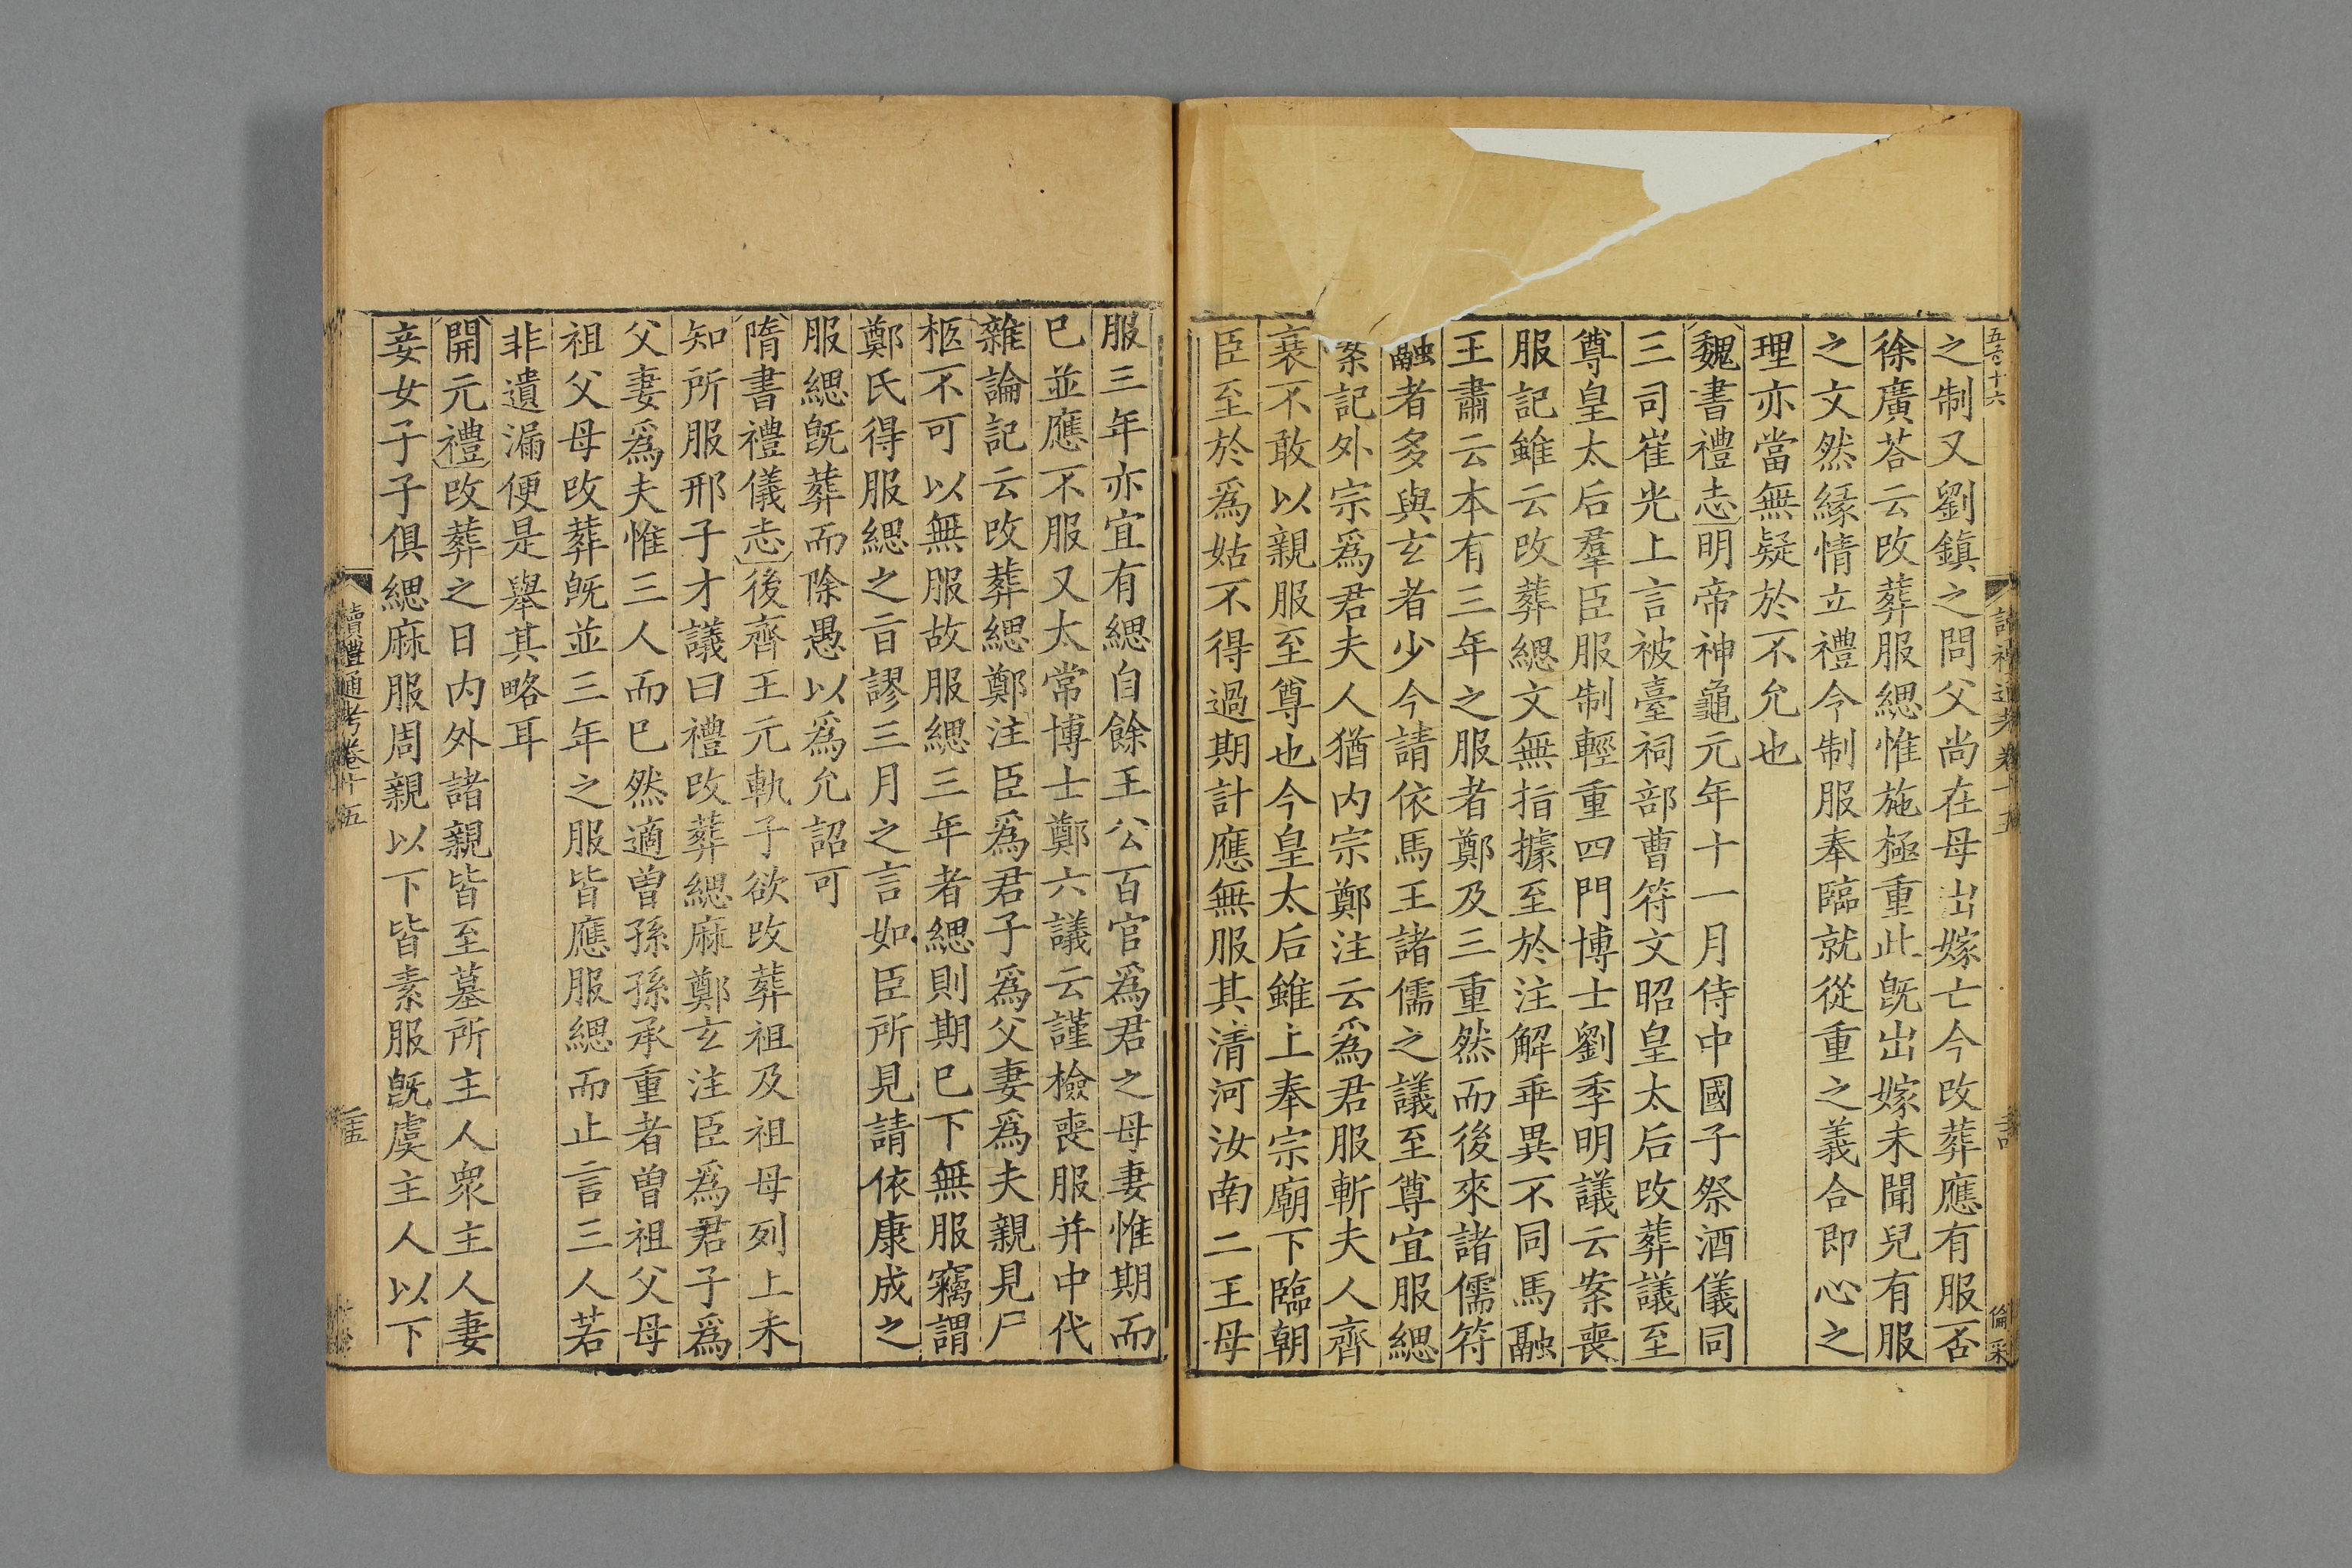 之制又劉鎮之問父尚在母出嫁亡今改葬應有服否
徐廣荅云改葬服緦惟施極重此旣出嫁未聞兒有服
之文然緣情立禮今制服奉臨就從重之義合即心之
理亦當無疑於不允也
魏書禮志明帝神龜元年十一月侍中國子祭酒儀同
三司崔光上言被臺祠部曹符文昭皇太后改葬議至
尊皇太后羣臣服制輕重四門博士劉季明議云案喪
服記雖云改葬緦文無指據至於注解乖異不同馬融
王肅云本有三年之服者鄭及三重然而後來諸儒符
融者多與玄者少今請依馬王諸儒之議至尊宜服緦
案記外宗爲君夫人猶内宗鄭注云爲君服斬夫人齊
衰不敢以親服至尊也今皇太后雖上奉宗廟下臨朝
臣至於爲姑不得過期計應無服其清河汝南二王母
服三年亦宜有緦自餘王公百官爲君之母妻惟期而
已並應不服又太常博士鄭六議云謹檢喪服并中代
雜論記云改葬緦鄭注臣爲君子爲父妻爲夫親見尸
柩不可以無服故服緦三年者緦則期巳下無服竊謂
鄭氏得服緦之㫖謬三月之言如臣所見請依康成之
服緦旣葬而除愚以爲允詔可
隋書禮儀志後齊王元軌子欲改葬祖及祖母列上未
知所服邢子才議曰禮改葬緦麻鄭玄注臣爲君子爲
父妻爲夫惟三人而巳然適曾孫孫承重者曾祖父母
祖父母改葬旣並三年之服皆應服緦而止言三人若
非遺漏便是舉其略耳
開元禮改葬之日内外諸親皆至墓所主人衆主人妻
妾女子子俱緦麻服周親以下皆素服旣虞主人以下
讀禮通考卷十五